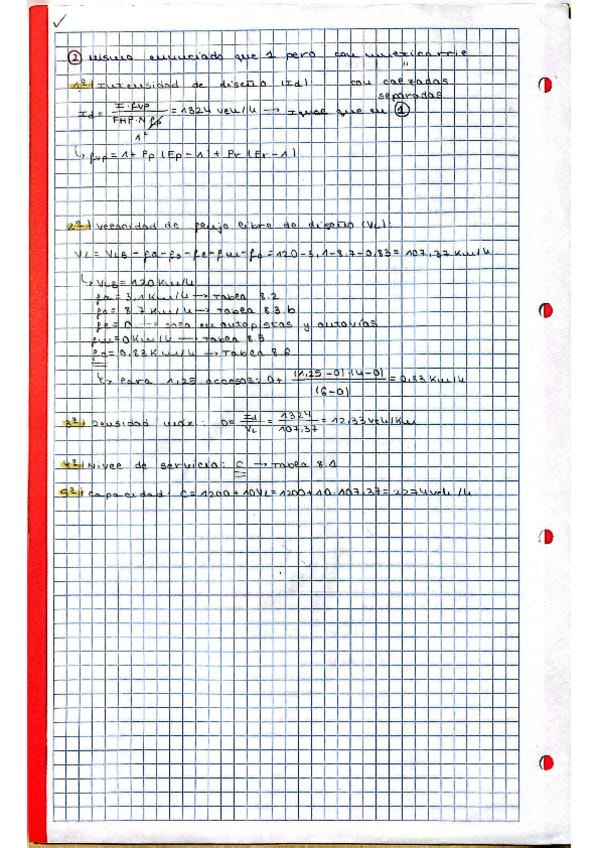 ✓
② Mismo enunciado que 1 pero con multicarril
con calzadas separadas
1º) Intensidad de diseño (Id):
Id = I·fvp / FHP·N·fp = 1324 veh/h → Igual que en ①
1"
↳ fvp = 1 + Pp (Ep - 1) + Pr (Er - 1)
2º) Velocidad de flujo libre de diseño (VL):
VL = VLB - fa - fo - fe - fm - fo = 120 - 3,1 - 8,7 - 0,83 = 107,37 km/h
↳ VLB = 120 km/h
fa = 3,1 km/h → Tabla 8.2
fo = 8,7 km/h → Tabla 8.3.b
fe = 0 → solo en autopistas y autovías
fm = 0 km/h → Tabla 8.5
fa = 0,83 km/h → Tabla 8.6
↳ Para 1,25 accesos: 0 + (1,25 - 0)·(4 - 0) / (6 - 0) = 0,83 km/h
3º) Densidad máx.: D = Id / VL = 1324 / 107,37 = 12,33 veh/km
4º) Nivel de servicio: C → Tabla 8.1
5º) Capacidad: C = 1200 + 10VL = 1200 + 10·107,37 = 2274 veh/h